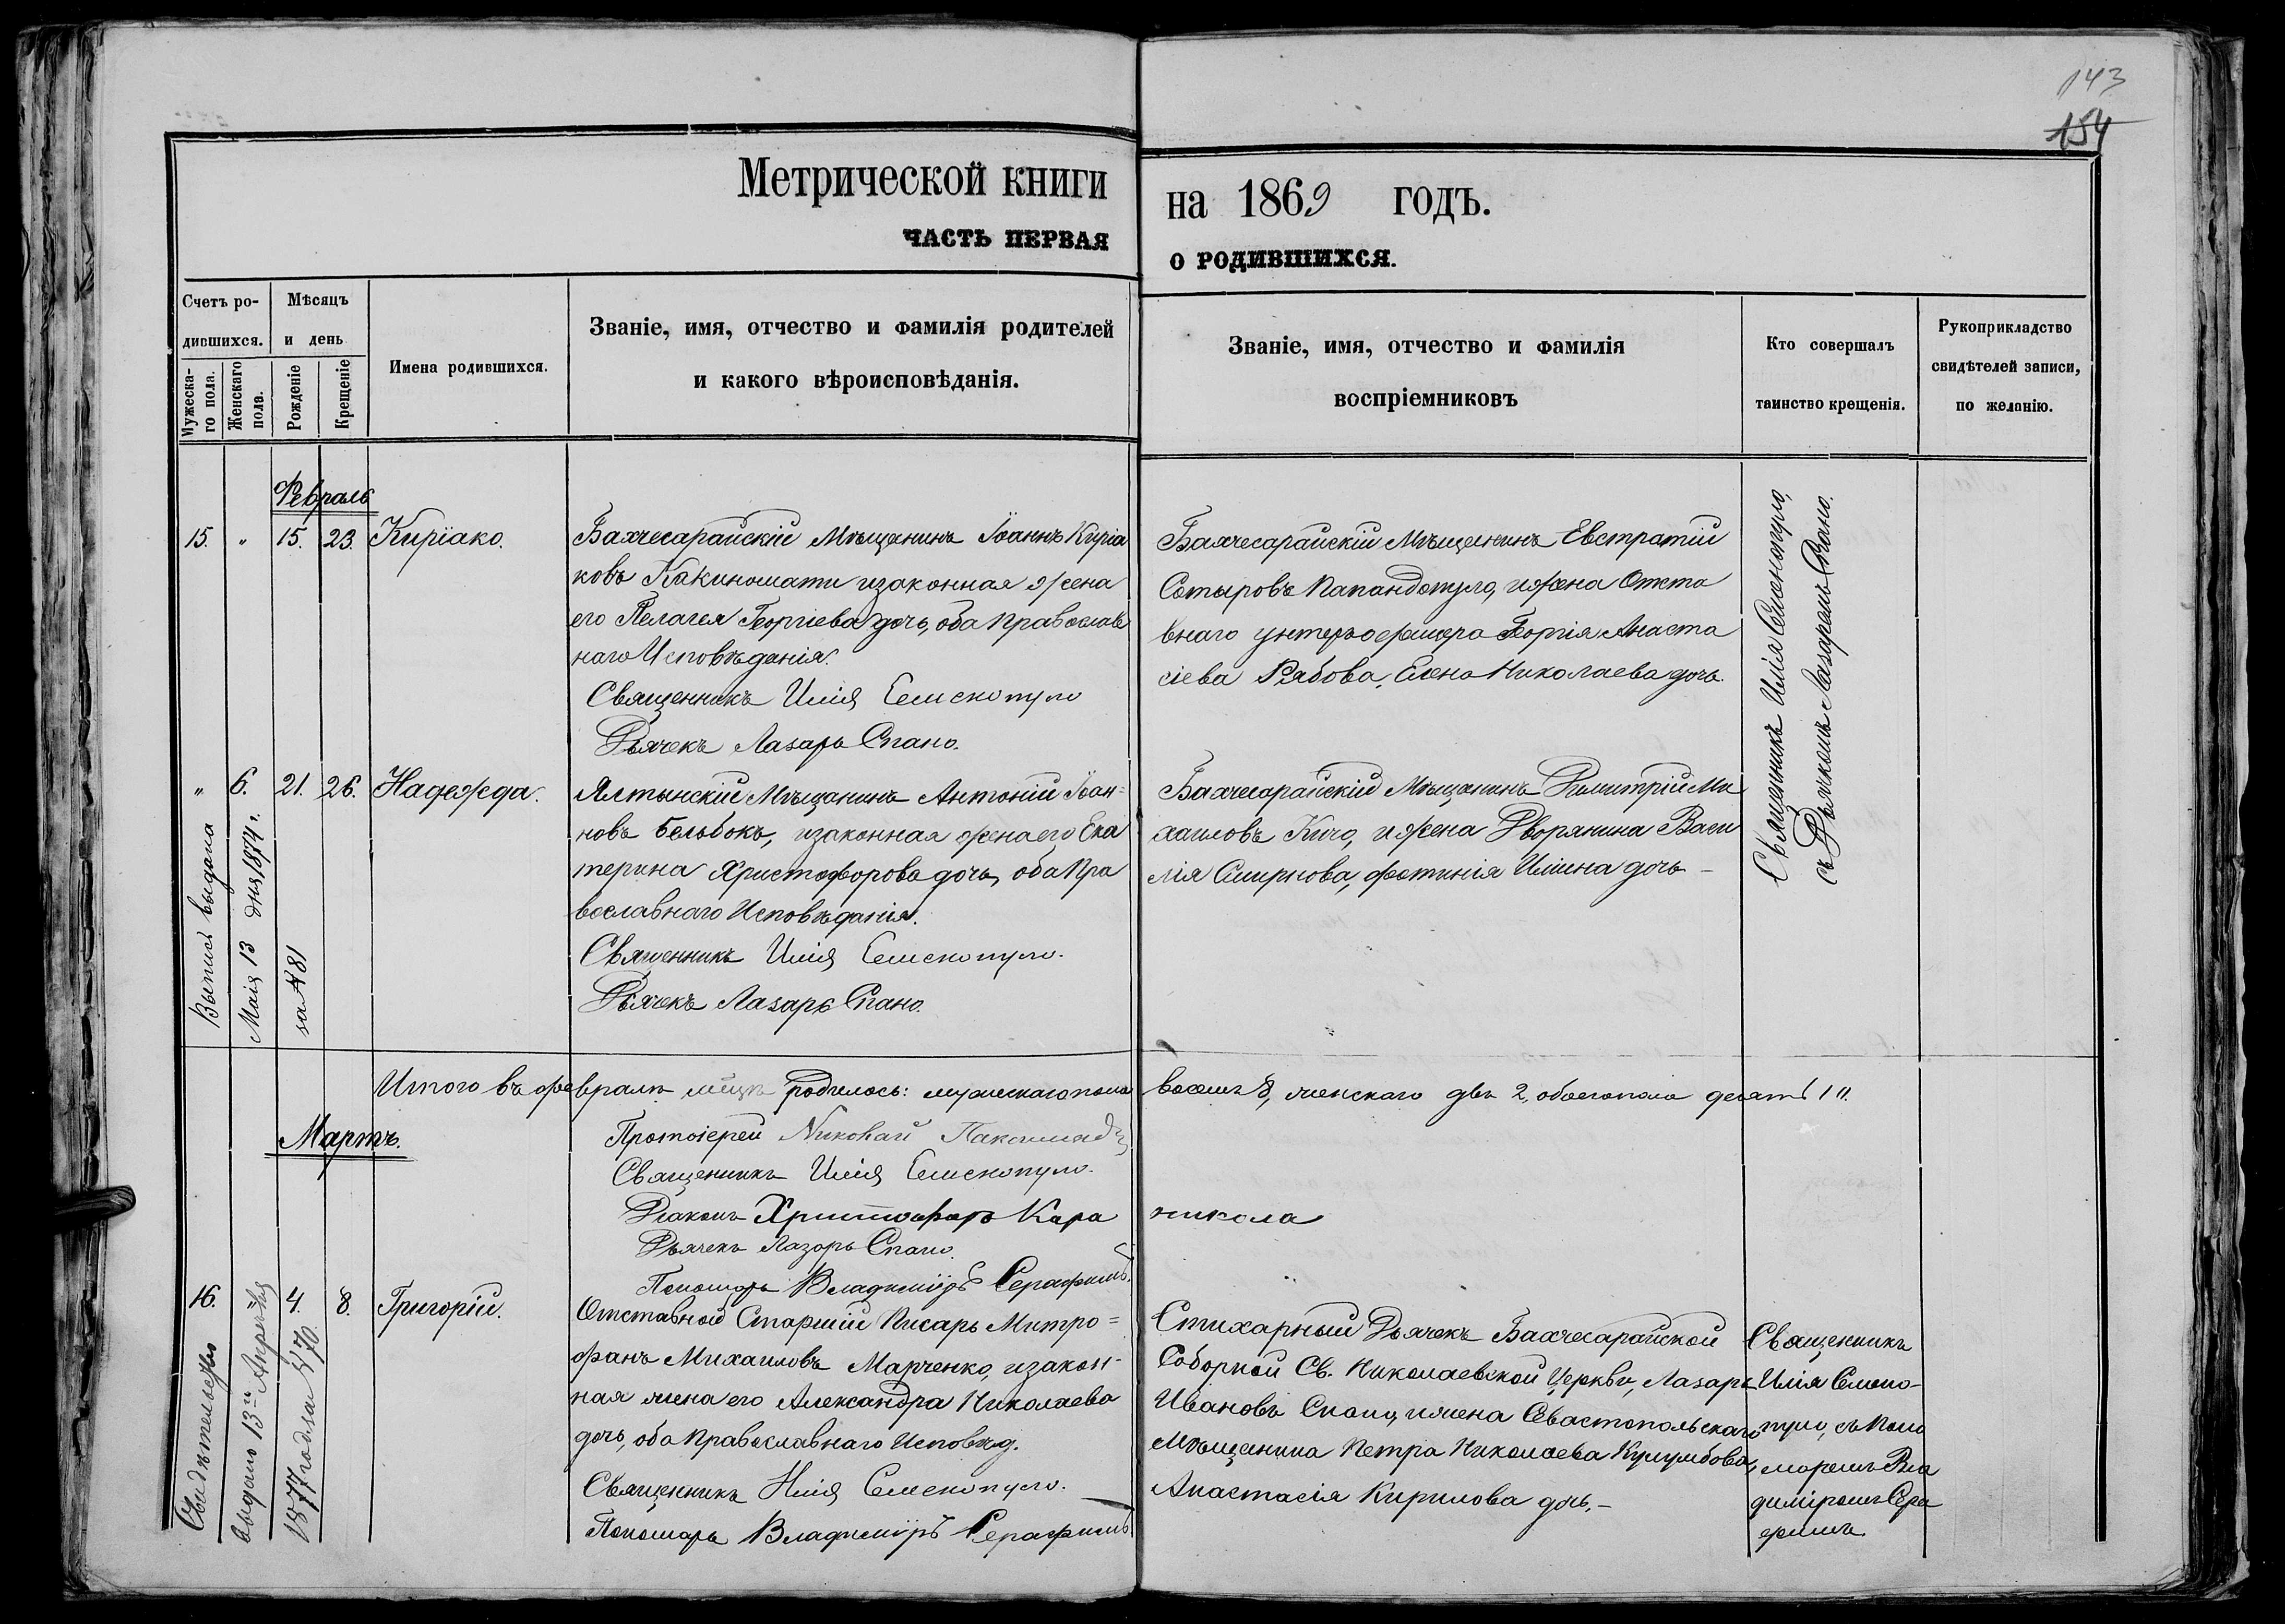 143
154
Метрической книги
на 1869 годъ.
ЧАСТЬ ПЕРВАЯ
О РОДИВШИХСЯ.
Счетъ ро-
дившихся.
Мѣсяцъ
и день
Мужеска-
го пола.
Женскаго
пола.
Рожденіе
Крещеніе
Имена родившихся.
Званіе, имя, отчество и фамилія родителей
и какого вѣроисповѣданія.
Званіе, имя, отчество и фамилія
воспріемниковъ
Кто совершалъ
таинство крещенія.
Рукоприкладство
свидѣтелей записи,
по желанію.
Февраль
15. " 15. 23. Киріако.
Бахчесарайскій Мѣщанинъ Іоаннъ Киріа
ковъ Какиношати изаконная жена
его Пелагея Георгіева дочь, оба Православ
наго Исповѣданія.
Священникъ Илія
Дьячекъ Лазарь Спано.
Бахчесарайскій Мѣщанинъ Евстратій
Сотыровъ Папандопуло, ижена Отста
внаго унтеръ офицера Георгія Анаста
сіева Рябова, Елена Николаева дочь.
Священникъ Илія
съ Дьячкомъ Лазаремъ Спано.
" 6. 21. 26. Надежда.
Ялтынскій Мѣщанинъ Антоній Іоан=
новъ Бельбокъ, изаконная жена его Ека
терина Христофорова дочь, оба Пра
вославнаго Исповѣданія.
Священникъ Илія
Дьячекъ Лазарь Спано.
Бахчесарайскій Мѣщанинъ Димитрій Ми
хаиловъ Кичо, ижена Дворянина Васи
лія Смирнова, Фотинія Иліина дочь –
Выпись выдана
Маія 13 дня 1874 г.
за № 81
Итого въ февралѣ мѣцѣ родилось: мужескаго пола восемь 8, женскаго двѣ 2, обоего пола десять 10.
Мартъ.
Протоіерей Николай
Священникъ Илія
Діаконъ Христофоръ Кара никола
Дьячекъ Лазарь Спано.
Пономарь Владиміръ Серафимъ.
16. 4. 8. Григорій.
Отставной Старшій Писарь Митро=
фанъ Михаиловъ Марченко, изакон-
ная жена его Александра Николаева
дочь, оба Православнаго Исповѣд.
Священникъ Илія
Пономарь Владиміръ Серафимъ
Стихарный Дьячекъ Бахчесарайской
Соборной Св. Николаевской Церкви, Лазарь
Ивановъ Спано, ижена Севастопольскаго
Мѣщанина Петра Николаева Кулумбова,
Анастасія Кирилова дочь. –
Священникъ
Илія
пуло, съ Поно
маремъ Вла
диміромъ Сера
фимъ.
Свидѣтельство
выдано 13го Апрѣля
1877 года за № 70.